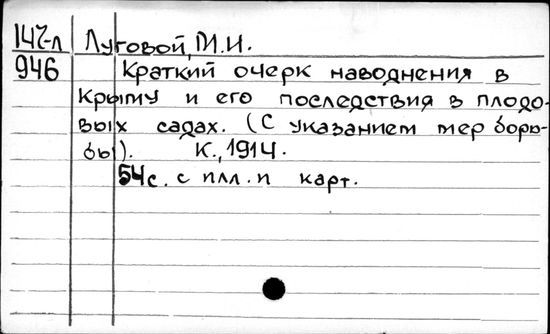 147-л Луговой, М.И.
946 Краткий очерк наводнения в
Крыму и его последствия в плодо-
вых садах. (С указанием мер борь-
бы). К., 1914.
54с. с илл. и карт.